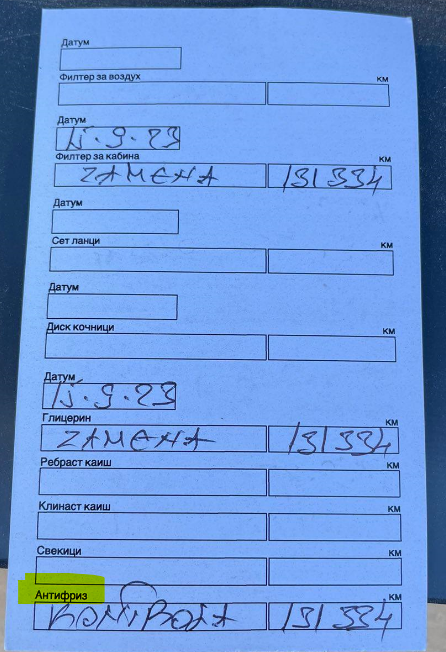 Датум
Филтер за воздух км
Датум
15.9.23
Филтер за кабина км
ZAMENA 131 334
Датум
Сет ланци км
Датум
Диск кочници км
Датум
15.9.23
Глицерин км
ZAMENA 131 334
Ребраст каиш км
Клинаст каиш км
Свекици км
Антифриз км
131 334